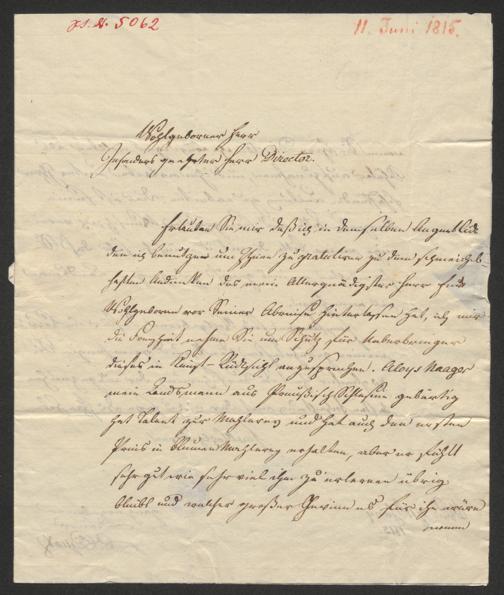 J.N. 5062
11. Juni 1815.
Wohlgeborner Herr
Besonders geehrter Herr Director.
Erlauben Sie mir daß ich in demselben Augenblick
den ich benutze um Ihnen zu gratuliren zu dem schmeichel
haften Andenken das mein Allergnädigster Herr Euer
Wohlgeboren vor Seiner Abreise hinterlassen hat, ich mir
die Freyheit nehme Sie um Schutz für Ueberbringer
dieses in Kunst-Rücksicht anzusprechen. Aloys
mein Landsmann aus Preußisch Schlesien gebürtig
hat Talent zur Mahlerey und hat auch den ersten
Preis in Blumen Mahlerey erhalten, aber er fühlt
sehr gut wie sehr viel ihm zu erlernen übrig
bleibt und welcher großer Gewinn es für ihn wäre
wenn